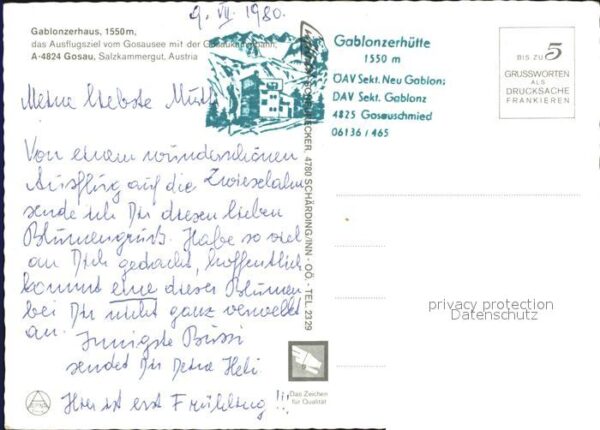 9. VII. 1980.
Gablonzerhaus, 1550m,
das Ausflugsziel vom Gosausee mit der Gosaukammbahn,
A-4824 Gosau, Salzkammergut, Austria
Meine liebste Mutt
Von einem wunderschönen
Ausflug auf die Zwieselalm
sende ich Dir diesen lieben
Blumengruß. Habe so viel
an Dich gedacht, hoffentlich
kommt eine dieser Blumen
bei Dir nicht ganz verwelkt
an. Innigste Bussi
sendet Dir Deine Heli
Hier ist erst Frühling !!!
Gablonzerhütte
1550 m
ÖAV Sekt. Neu Gablonz;
DAV Sekt. Gablonz
4825 Gosauschmied
06136 / 465
4780 SCHÄRDING/INN - OÖ. - TEL. 2329
BIS ZU 5
GRUSSWORTEN
ALS
DRUCKSACHE
FRANKIEREN
privacy protection
Datenschutz
Das Zeichen
für Qualität